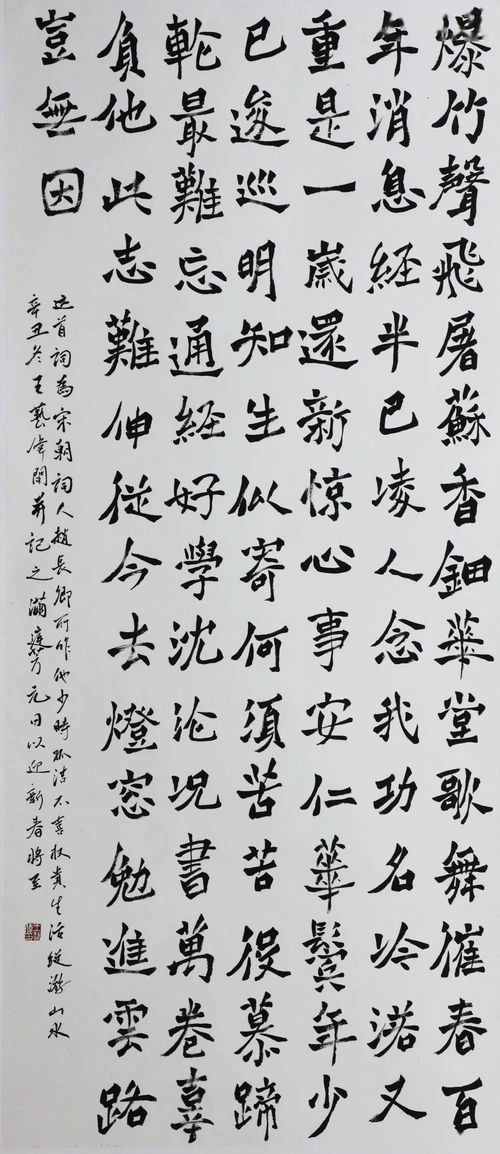 爆竹聲飛屠蘇香鈿華堂歌舞催春百
年消息經半已凌人念我功名冷落又
重是一歲還新惊心事安仁華鬢年少
已逡巡明知生似寄何須苦苦役慕蹄
輪最難忘通經好學沈淪況書萬卷辜
負他此志難伸從今去燈窓勉進雲路
豈無因
这首詞為宋朝詞人趙長卿所作他少時孤洁不喜权貴生活縱游山水
辛丑冬王藝并記之滿庭芳元日以迎新春將至